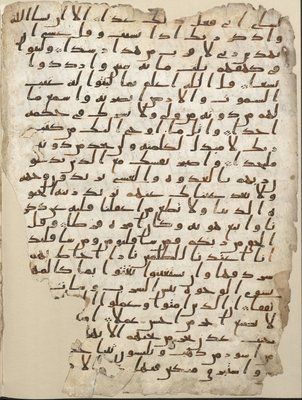 اني فعل ذلك غدا الا ان يشا الله
واذكر ربك اذا نسيت وقل عسى ا
ن يهدين ربي لاقرب من هذا رشدا ولبثوا
في كهفهم ثلث مائة سنين وازدادوا
تسعا قل الله اعلم بما لبثوا له غيب
السموت والارض ابصر به واسمع ما
لهم من دونه من ولي ولا يشرك في حكمه
احدا واتل ما اوحي اليك من كتب
ربك لا مبدل لكلمته ولن تجد من دونه
ملتحدا واصبر نفسك مع الذين يدعو
ن ربهم بالغدوة والعشي يريدون وجهه
ولا تعد عينك عنهم تريد زينة الحيو
ة الدنيا ولا تطع من اغفلنا قلبه عن ذكر
نا واتبع هويه وكان امره فرطا وقل
الحق من ربكم فمن شا فليومن ومن شا فليكفر
انا اعتدنا للظلمين نارا احاط بهم
سردقها وان يستغيثوا يغاثوا بما كالمهل
يشوي الوجوه بئس الشراب وسات
تفقا ان الذين امنوا وعملوا
لا نضيع اجر من احسن عملا
جنت عدن تجري من تحتهم الانهر
من اسور من ذهب ويلبسون ثيابا
واستبرق متكين فيها